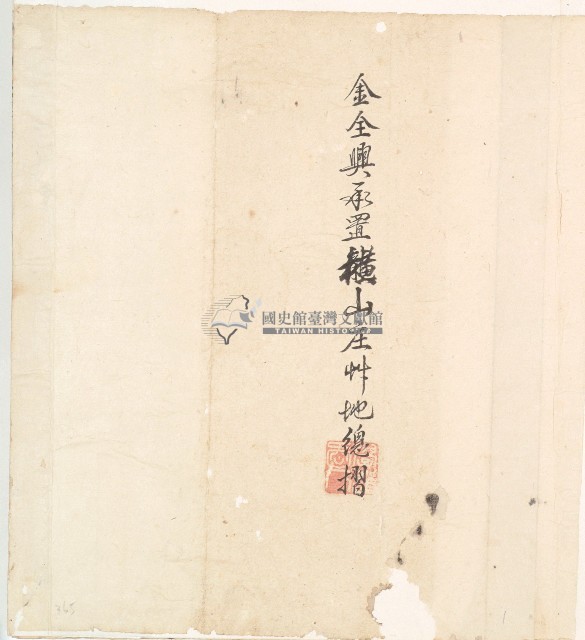 金全興承置橫山庄艸地總摺
國史館臺灣文獻館
TAIWAN HISTO
365